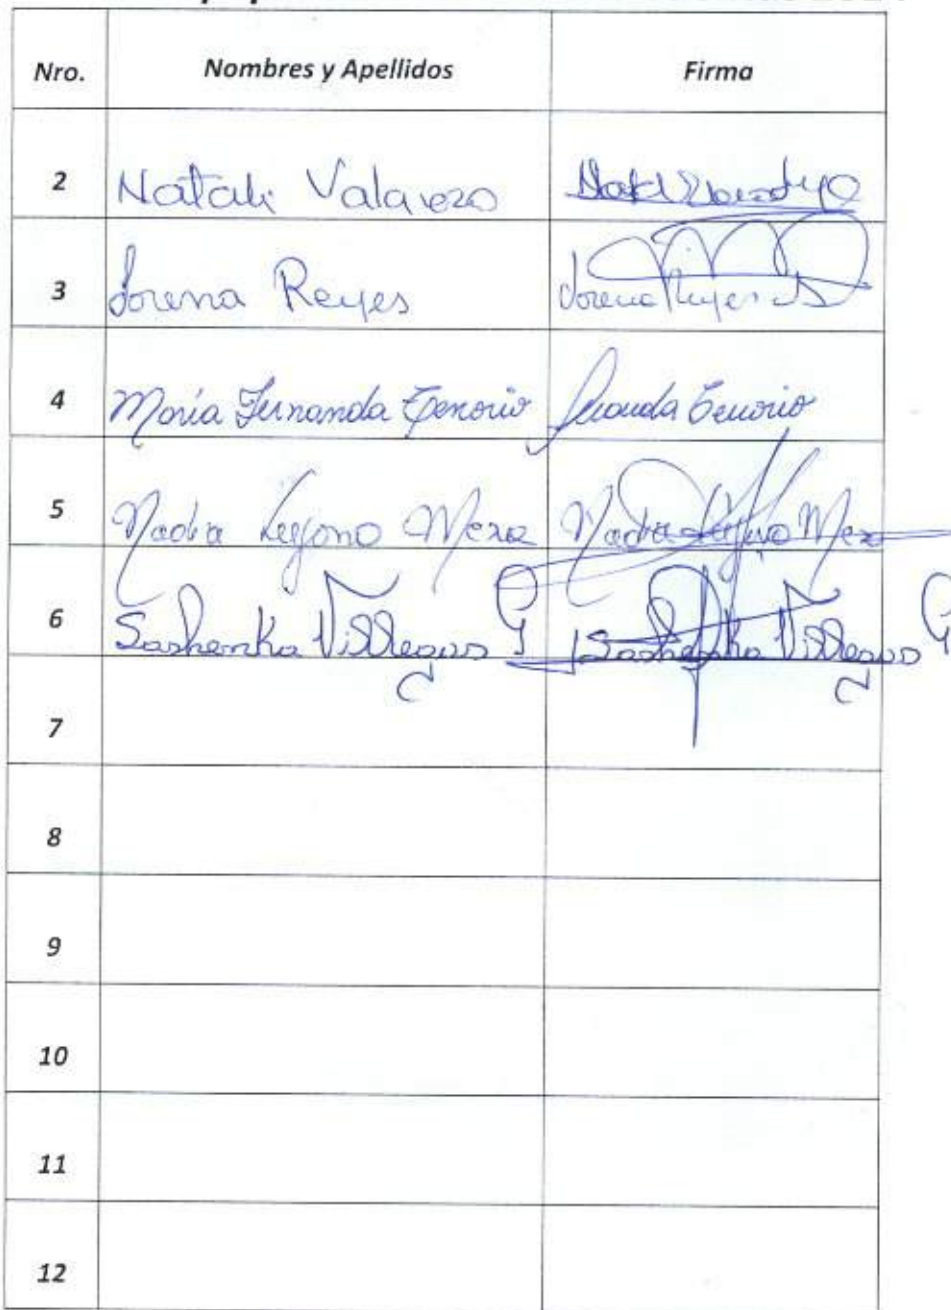 Nro. Nombres y Apellidos Firma
2 Natali Valarezo
3 Lorena Reyes Lorena Reyes
4 María Fernanda Tenorio Tenorio
5 Nadia Meza Nadia Meza
6 Sashenka Villegas G Sashenka Villegas G
7
8
9
10
11
12